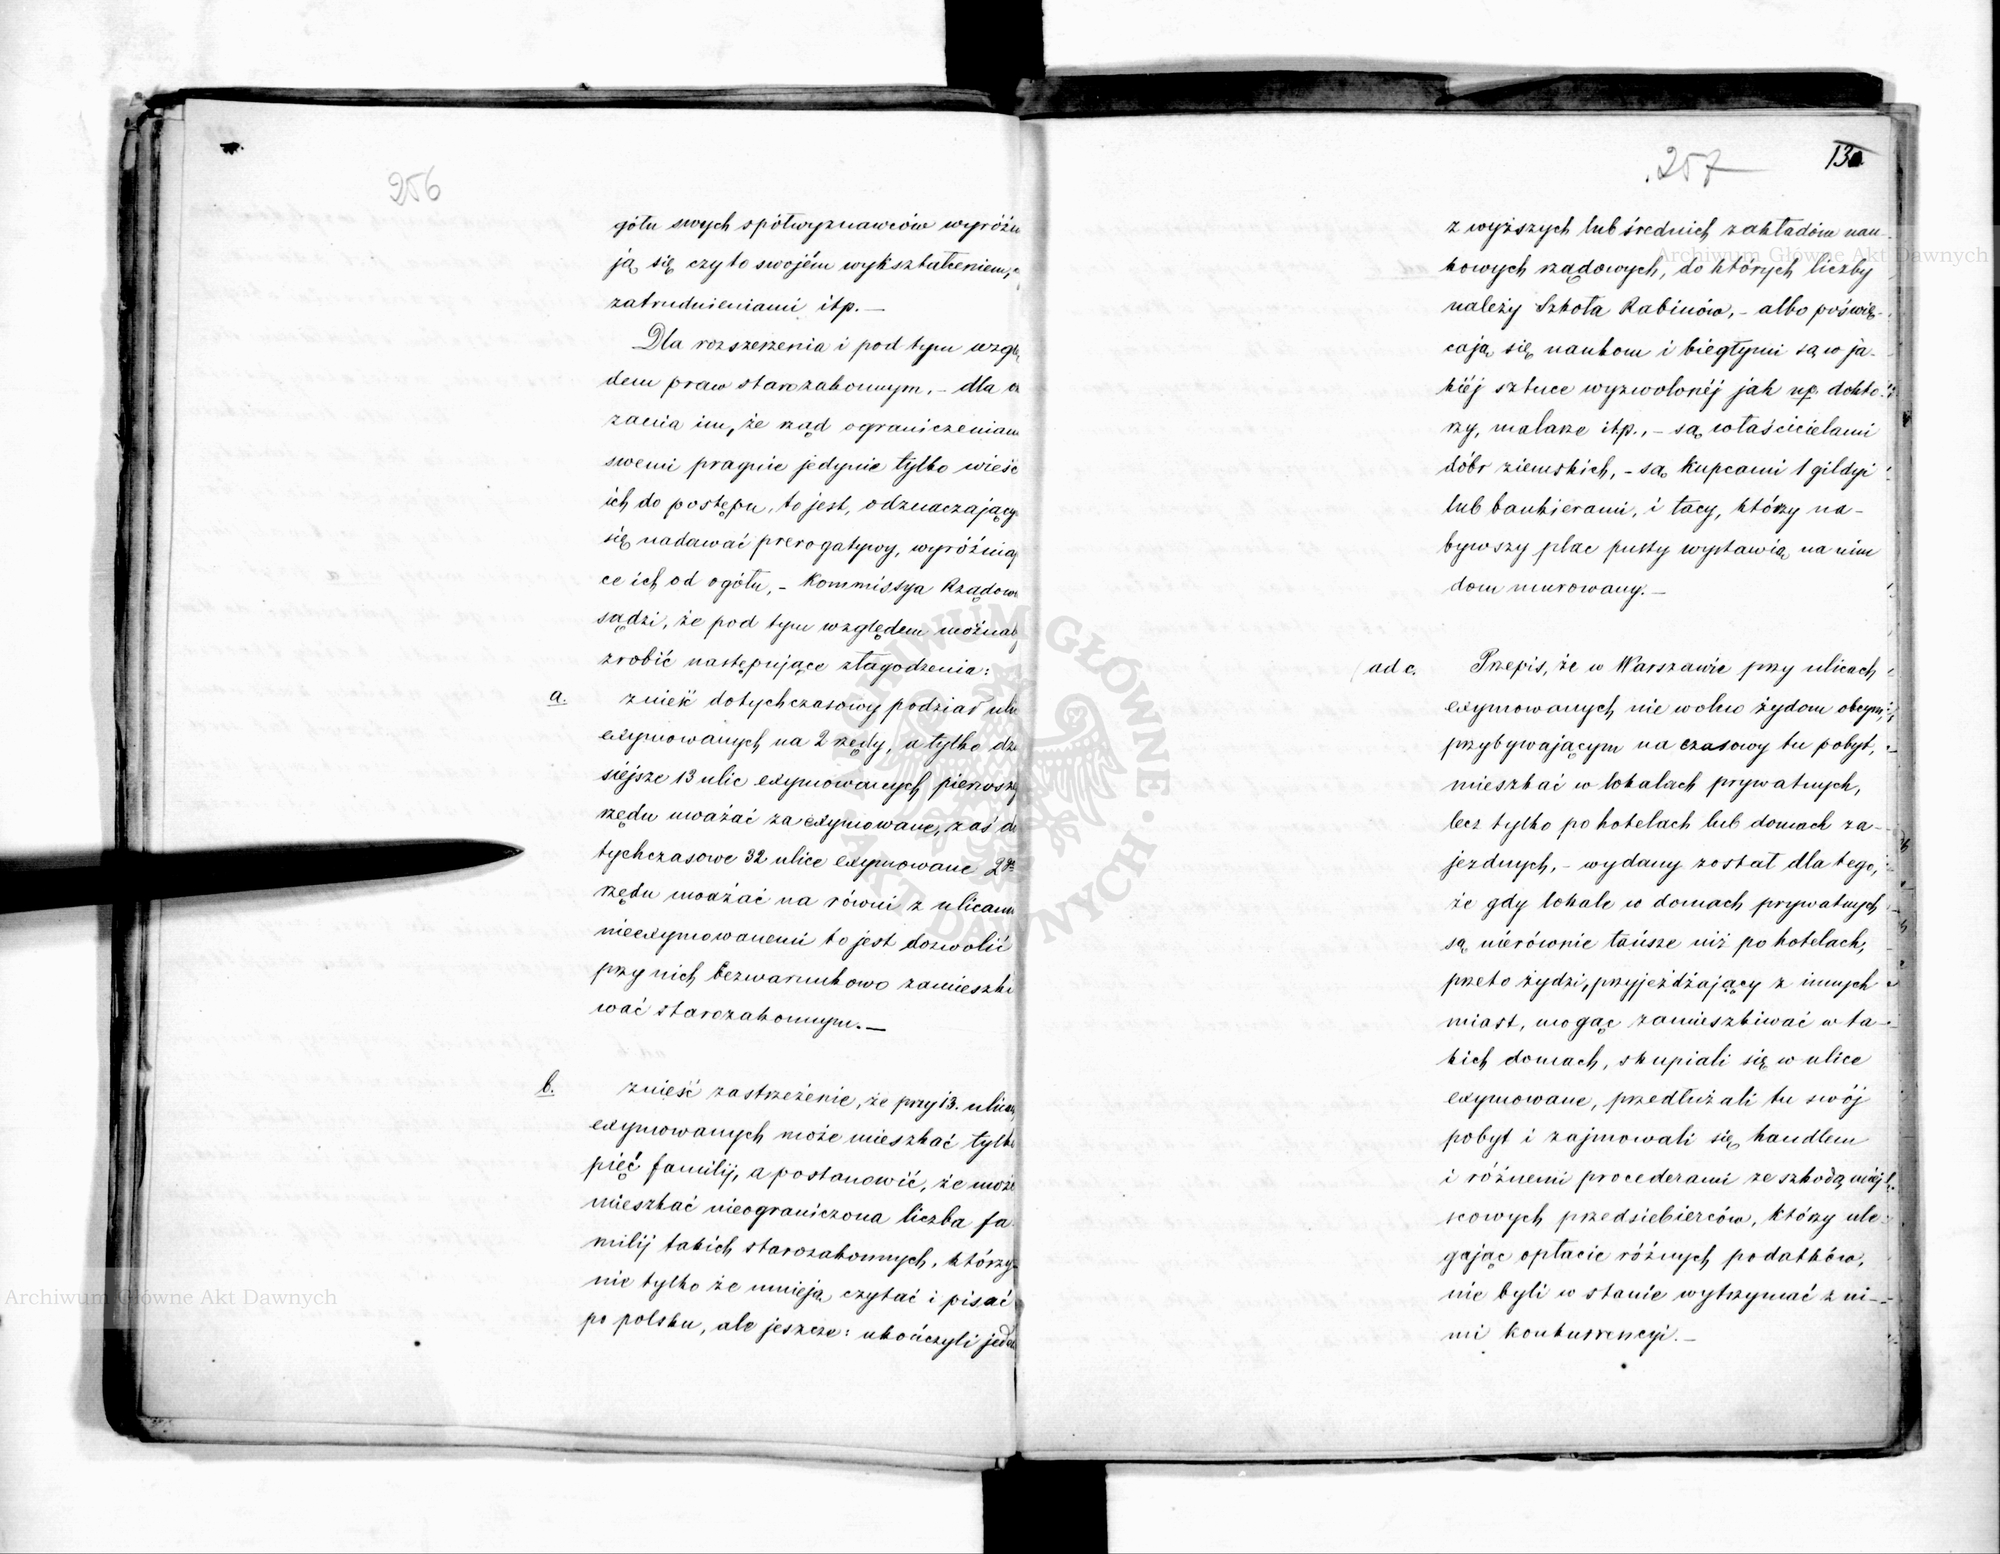 256
gółu swych spółwyznawców wyróżn
ją się czy to swojém wykształceniem,
zatrudnieniami itp. —
Dla rozszerzenia i pod tym wzglę
dem praw starozakonnym, – dla
zania im, że rząd ograniczeniam
swemi pragnie jedynie tylko wieść
ich do postępu, to jest, odznaczający
się nadawać prerogatywy, wyróżniają
ce ich od ogółu, – Kommissya Rządow
sądzi, że pod tym względem możnab
zrobić następujące złagodzenia:
a. znieść dotychczasowy podział uli
exymowanych na 2 rzędy, a tylko dzi
siejsze 13 ulic exymowanych pierwszeg
rzędu uważać za exymowane, zaś do
tychczasowe 32 ulice exymowane 2go
rzędu uważać na równi z ulicami
nieexymowanemi to jest dozwolić
przy nich bezwarunkowo zamieszki
wać starozakonnym. —
b. znieść zastrzeżenie, że przy 13. ulicac
exymowanych może mieszkać tylko
pięć familij, a postanowić, że może
mieszkać nieograniczona liczba fa
milij takich starozakonnych, którzy
nie tylko że umieją czytać i pisać
po polsku, ale jeszcze: ukończyli jede
257
130
z wyższych lub średnich zakładów nau-
kowych rządowych, do których liczby
należy Szkoła Rabinów, – albo poświę-
cają się naukom i biegłymi są w ja-
kiéj sztuce wyzwolonéj jak np. dokto-
rzy, malarze itp., – są właścicielami
dóbr ziemskich, – są Kupcami 1 gildyi
lub bankierami, i tacy, którzy na-
bywszy plac pusty wystawią na nim
dom murowany. —
ad c. Przepis, że w Warszawie przy ulicach
exymowanych nie wolno żydom obcym,
przybywającym na czasowy tu pobyt,
mieszkać w lokalach prywatnych,
lecz tylko po hotelach lub domach za-
jezdnych, – wydany został dla tego,
że gdy lokale w domach prywatnych
są nierównie tańsze niż po hotelach,
przeto żydzi, przyjeżdżający z innych
miast, mogąc zamieszkiwać w ta-
kich domach, skupiali się w ulice
exymowane, przedłużali tu swój
pobyt i zajmowali się handlem
i różnemi procederami ze szkodą miéj-
scowych przedsiebierców, którzy ule-
gając opłacie różnych podatków,
nie byli w stanie wytrzymać z ni-
mi konkurrencyi. —
Archiwum Główne Akt Dawnych
Archiwum Główne Akt Dawnych
ARCHIWUM GŁÓWNE AKT DAWNYCH